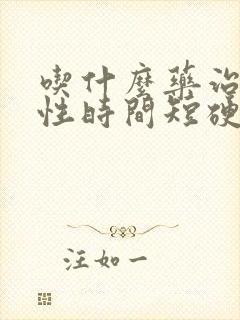 喫什麼藥治
性時間短硬
汪如一